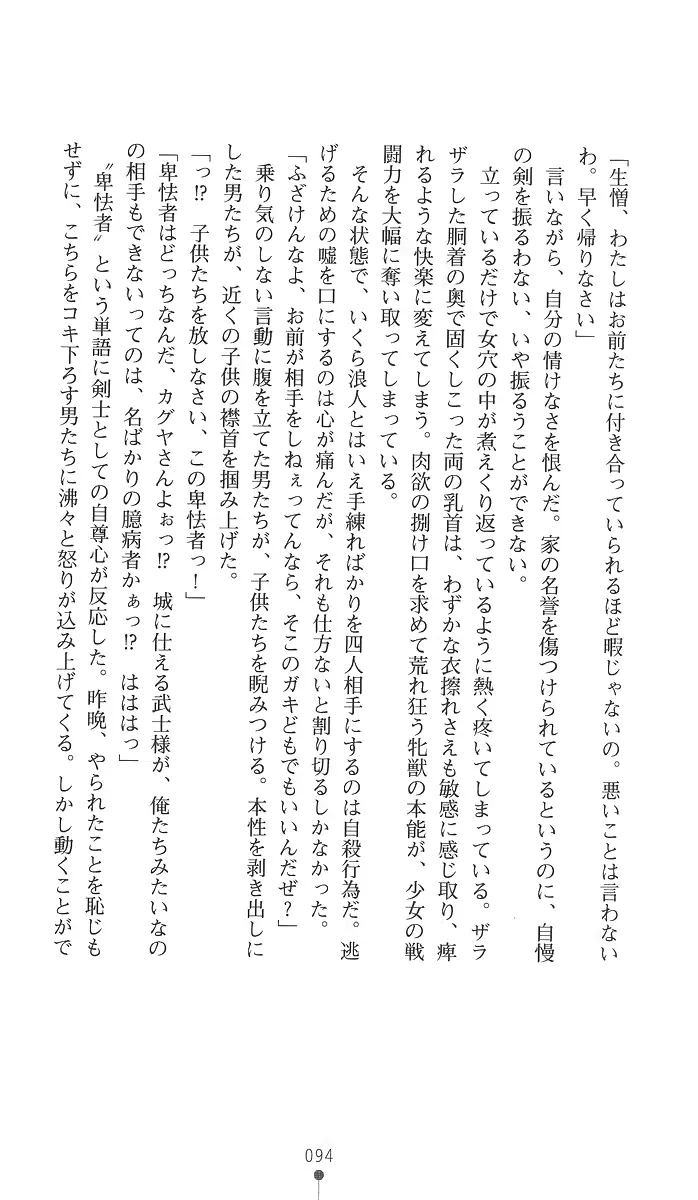 「生憎、わたしはお前たちに付き合っていられるほど暇じゃないの。悪いことは言わない
わ。早く帰りなさい」
言いながら、自分の情けなさを恨んだ。家の名誉を傷つけられているというのに、自慢
の剣を振るわない、いや振るうことができない。
立っているだけで女穴の中が煮えくり返っているように熱く疼いてしまっている。ザラ
ザラした胴着の奥で固くしこった両の乳首は、わずかな衣擦れさえも敏感に感じ取り、痺
れるような快楽に変えてしまう。肉欲の捌け口を求めて荒れ狂う牝獣の本能が、少女の戦
闘力を大幅に奪い取ってしまっている。
そんな状態で、いくら浪人とはいえ手練ればかりを四人相手にするのは自殺行為だ。逃
げるための嘘を口にするのは心が痛んだが、それも仕方ないと割り切るしかなかった。
「ふざけんなよ、お前が相手をしねぇってんなら、そこのガキどもでもいいんだぜ？」
乗り気のしない言動に腹を立てた男たちが、子供たちを睨みつける。本性を剥き出しに
した男たちが、近くの子供の襟首を掴み上げた。
「っ!?　子供たちを放しなさい、この卑怯者っ！」
「卑怯者はどっちなんだ、カグヤさんよぉっ!?　城に仕える武士様が、俺たちみたいなの
の相手もできないってのは、名ばかりの臆病者かぁっ!?　はははっ」
〝卑怯者〟という単語に剣士としての自尊心が反応した。昨晩、やられたことを恥じも
せずに、こちらをコキ下ろす男たちに沸々と怒りが込み上げてくる。しかし動くことがで
094